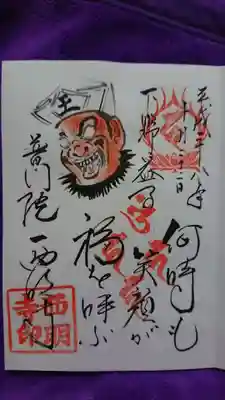 平成二八年
何時も
笑顔が
福を呼ぶ
下野益子
王
普門院
西明寺
西明
寺印